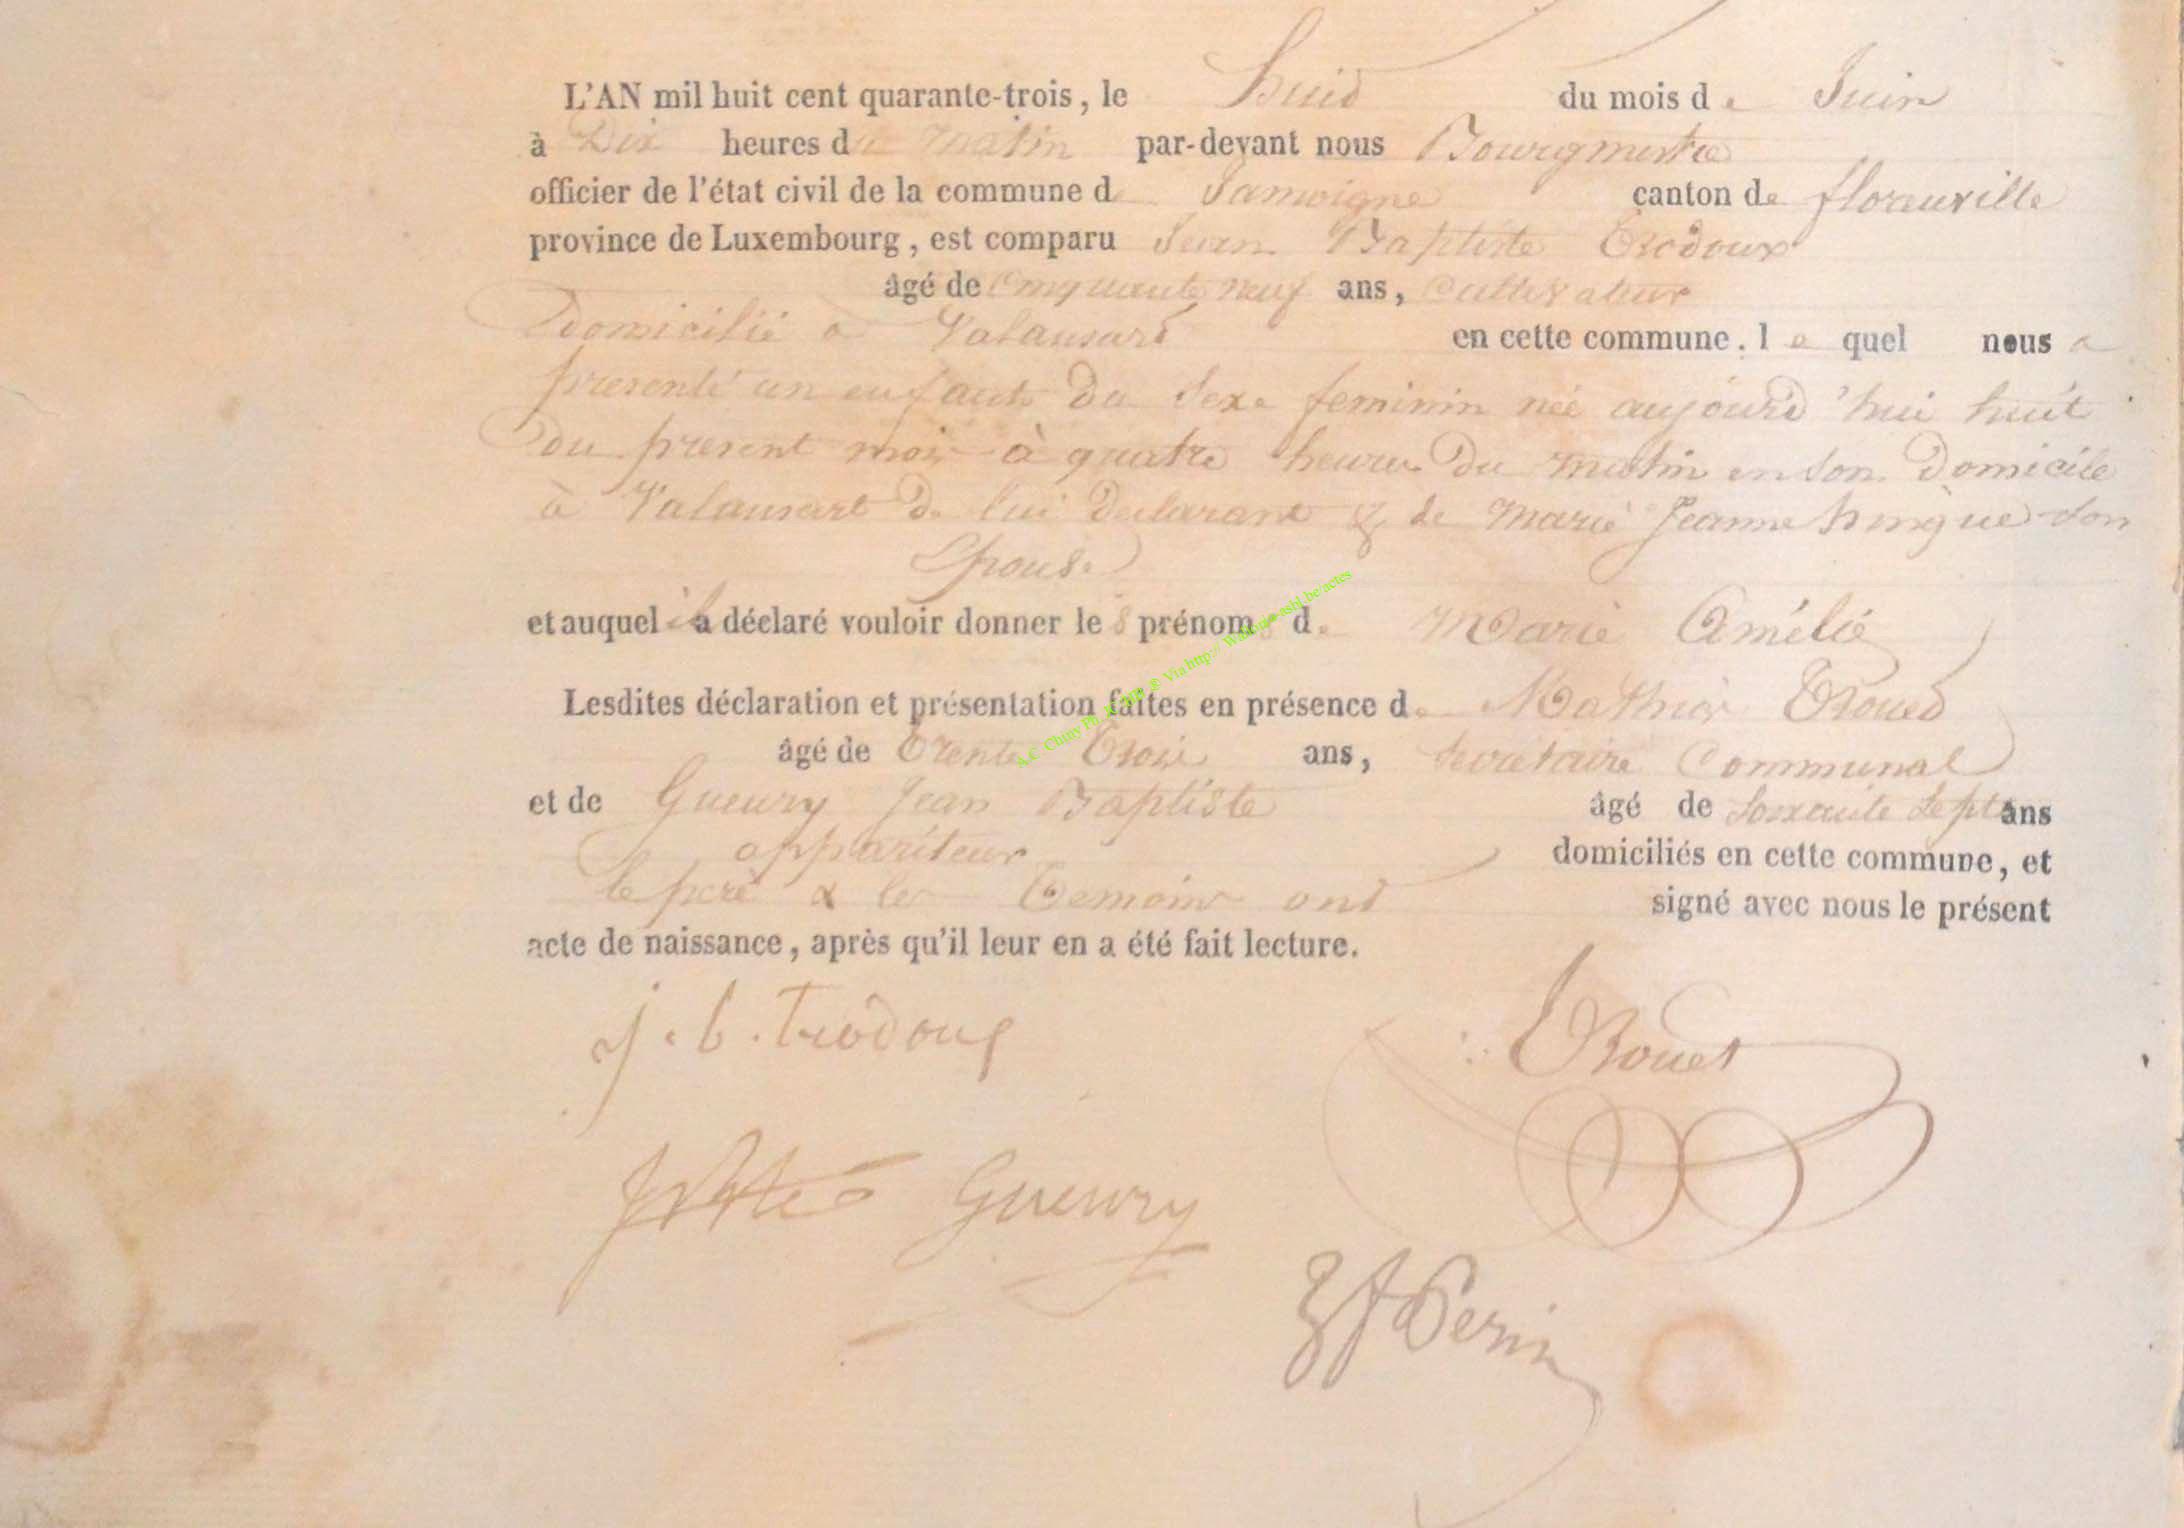 L'AN mil huit cent quarante-trois, le huid du mois de Juin
à Dix heures du matin par-devant nous Bourgmestre
officier de l'état civil de la commune de Jamoigne canton de florenville
province de Luxembourg, est comparu Jean Baptiste Trodoux
âgé de Cinquante neuf ans, Cultivateur
Domicilié à Valansart en cette commune. le quel nous a
presenté un enfant du Sexe feminin née aujourd'hui huit
du present mois à quatre heures du matin en son Domicile
à Valansart de lui declarant & de Marie Jeanne hingue son
Epouse
et auquel il a déclaré vouloir donner les prénoms de Marie Amélie
Lesdites déclaration et présentation faites en présence de Mathieu Troued
âgé de Trente Trois ans, Secretaire Communal
et de Gueury Jean Baptiste âgé de Soixante Sept ans
appariteur domiciliés en cette commune, et
le pere & les Temoins ont signé avec nous le présent
acte de naissance, après qu'il leur en a été fait lecture.
j. b. Trodoux
Trouet
Gueury
Perin
A.C. Chiny Ph. ® Via http:// .be/actes